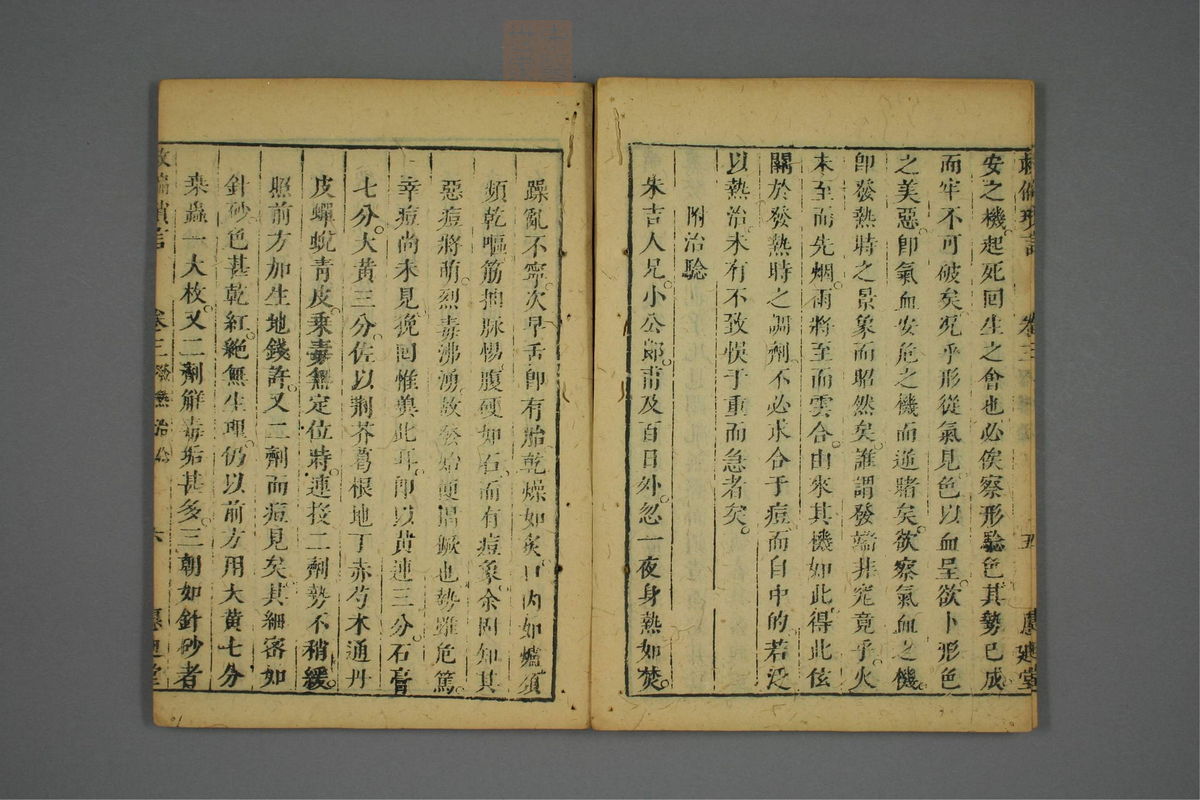 安之機起死回生之會也必俟察形驗色其勢已成
而牢不可破矣況乎形從氣見色以血呈欲卜形色
之美惡卽氣血安危之機而逆睹矣欲察氣血之機
卽發熱時之景象而昭然矣誰謂發端非究竟乎火
未至而先烟雨將至而雲合由來其機如此得此伭
關於發熱時之調劑不必求合于痘而自中的若汊
以熱治未有不致悞于重而急者矣
附治驗
朱吉人兄小公郎甫及百日外忽一夜身熱如焚
躁亂不寧次早舌卽有胎乾燥如炙口內如爐須
頻乾嘔筋抽脉惕腹硬如石面有痘象余固知其
惡痘將萌烈毒沸湧故發始便猖獗也勢雖危篤
幸痘尚未見挽回惟兾此耳卽以黃連三分石膏
七分大黃三分佐以荆芥葛根地丁赤芍木通丹
皮蟬蛻靑皮乘毒無定位時連投二劑勢不稍緩
照前方加生地錢許又二劑而痘見矣其細密如
針砂色甚乾紅絕無生理仍以前方用大黃七分
桒蟲一大枚又二劑解毒垢甚多三朝如針砂者
卷三
五
卷三
六